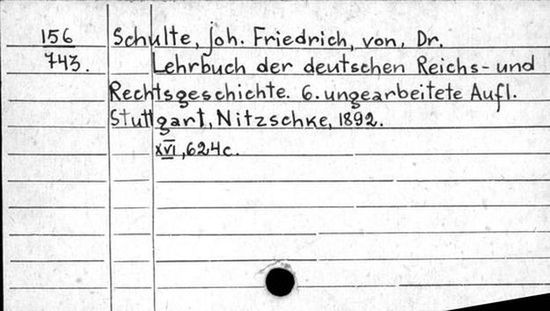 156 Schulte, Joh. Friedrich, von, Dr.
743. Lehrbuch der deutschen Reichs- und
Rechtsgeschichte. 6. ungearbeitete Aufl.
Stuttgart, Nitzschke, 1892.
XVI, 624c.